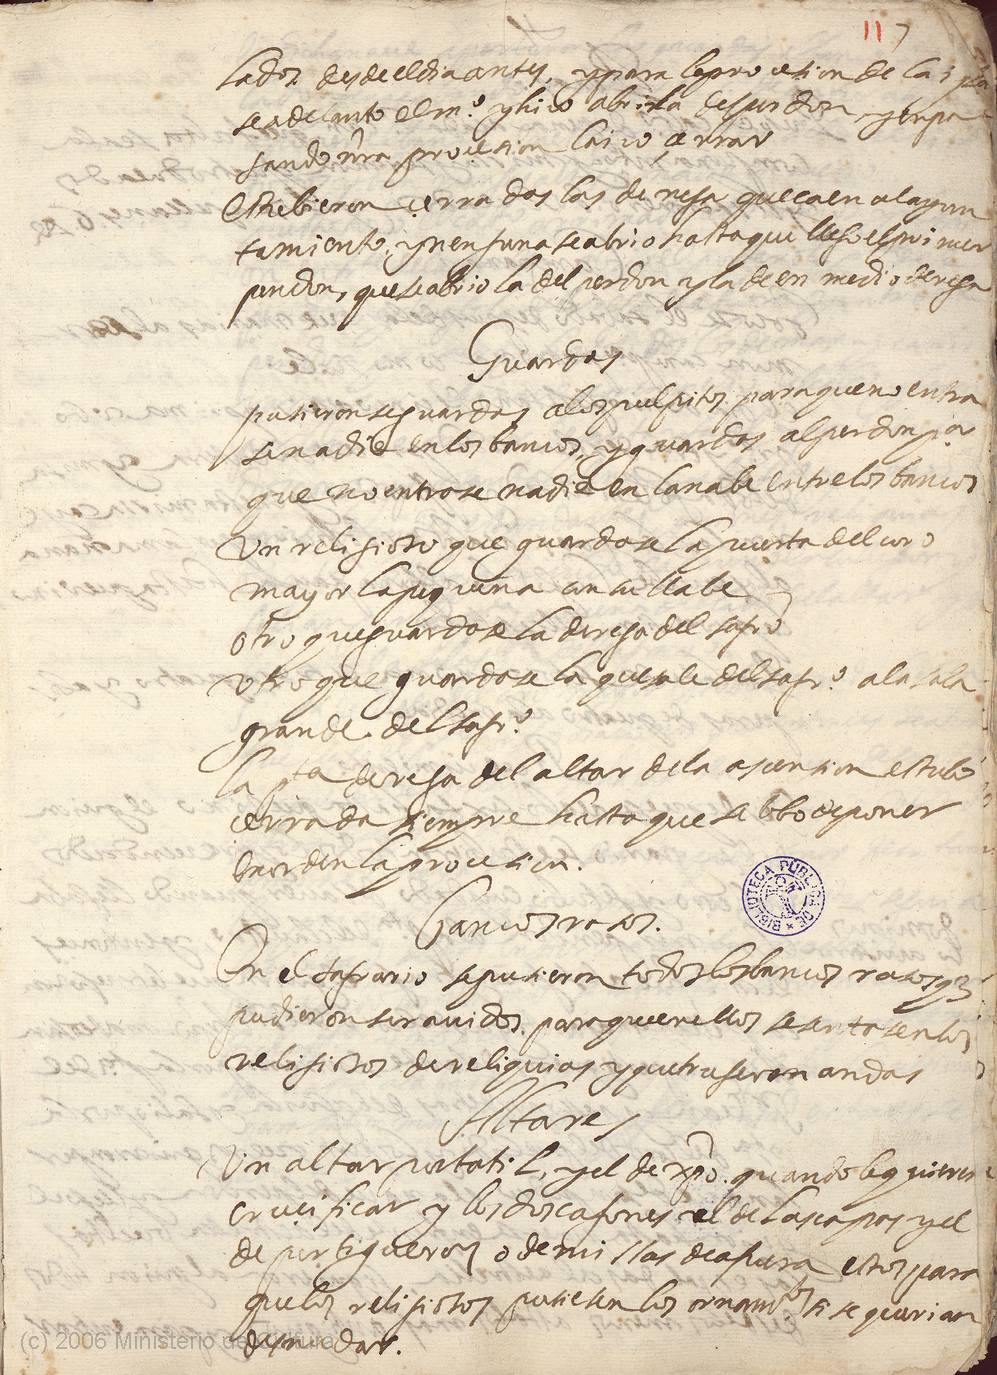 117
lados desde el dia antes, y para la procesion de la igla
sea delante el mº. y hico abrir la del perdon y en pa
sando nra procesion la iço çerrar
Estubieron çerradas las de rexa que caen al ayun
tamiento, y nenguna se abrio hasta que llego el primer
pendon, que se abrio la del perdon y la de en medio de rexa
Guardas
pusieronse guardas a los pulpitos para que no entra
se nadie en los bancos, y guardas al perdon pa
que no entrase nadie en la nabe entre los bancos
Un religioso que guardase la puerta del coro
mayor la pequena con su llabe
otro que guardase la de rexa del sagrº
otro que guardase la que sale del sagrº. a la sala
grande del sagrº.
la pta de rexa del altar de la asension estubo
cerrada siempre hasta que se hbo de poner
en orden la procesion.
Bancos rasos.
En el sagrario se pusieron todos los bancos rasos q
pudieron ser auidos para que en ellos se sentasen los
religiosos de reliquias y que truxeron andas
Altares
Un altar portatil, y el de xpo. quando le quieren
crucificar y los dos caxones el de las capas y el
de pertigueros o de misas de a para estos para
que los religiosos pusiesen los ornamtos si se querian
desnudar.
BIBLIOTECA PUBLICA DE
(c) 2006 Ministerio de Cultura